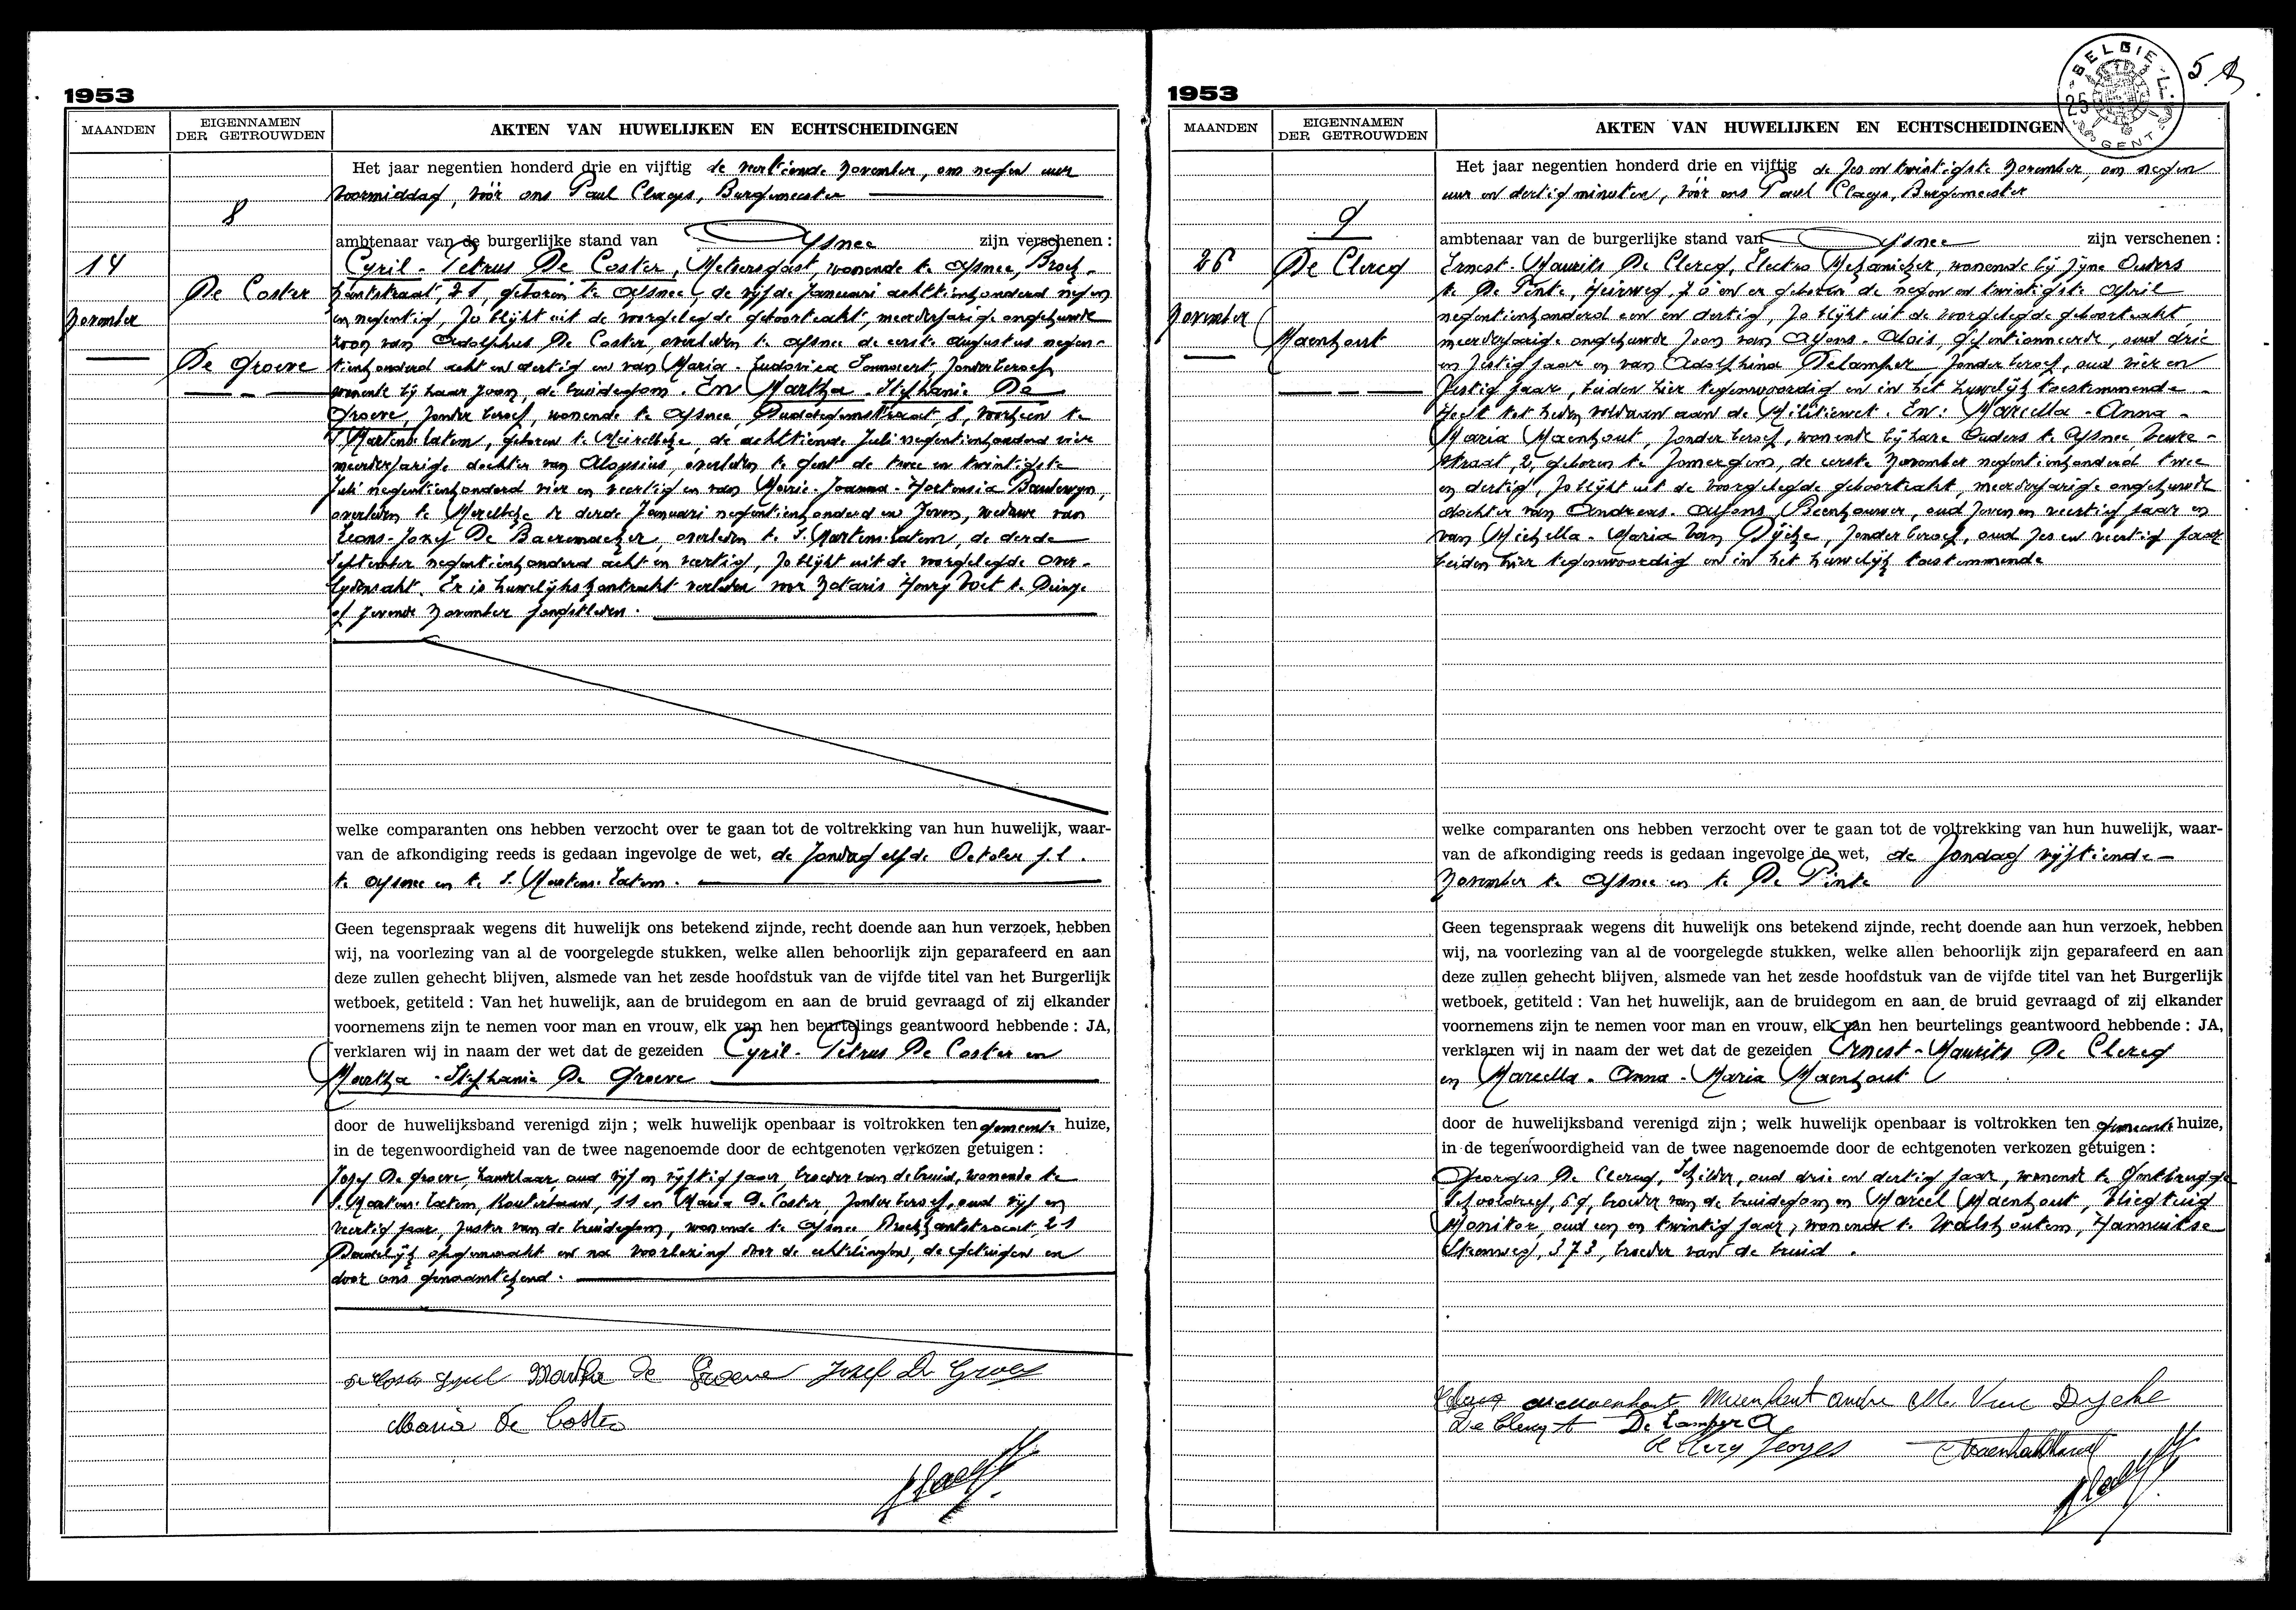 1953
MAANDEN
EIGENNAMEN
DER GETROUWDEN
AKTEN VAN HUWELIJKEN EN ECHTSCHEIDINGEN
8
14
November
De Coster
De Groeve
Het jaar negentien honderd drie en vijftig de veertiende November, om negen uur
voormiddag, vóór ons Paul Claeys, Burgemeester
ambtenaar van de burgerlijke stand van Afsnee zijn verschenen :
Cyril - Petrus De Coster, Metsersgast, wonende te Afsnee, Broek-
kantstraat, 21, geboren te Afsnee, de vijfde Januari achttienhonderd negen
en negentig, zo blijkt uit de voorgelegde geboorteakt, meerderjarige ongehuwde
zoon van Adolphus De Coster, overleden te Afsnee de eerste Augustus negen-
tienhonderd acht en dertig en van Maria - Ludovica zonder beroep
wonende bij haar zoon, de bruidegom. En Martha - Stephanie De
Groeve, zonder beroep, wonende te Afsnee, 8, voorheen te
S. Martens-Latem, geboren te Meirelbeke, de achttiende Juli negentienhonderd vier
meerderjarige dochter van Aloysius, overleden te Gent de twee en twintigste
Juli negentienhonderd vier en veertig en van Marie-Joanna-Hortensia Baudewyn,
overleden te Merelbeke de derde Januari negentienhonderd en zeven, weduwe van
Leons-Jozef De Baeremaeker, overleden te S. Martens-Latem, de derde
September negentienhonderd acht en veertig, zo blijkt uit de voorgelegde over-
lydensakt. Er is huwelijkskontrakt verleden voor Notaris Henry Voet te Deinze
op zevende November jongstleden.
welke comparanten ons hebben verzocht over te gaan tot de voltrekking van hun huwelijk, waar-
van de afkondiging reeds is gedaan ingevolge de wet, de Zondag elfde October j.l.
te Afsnee en te S. Martens-Latem.
Geen tegenspraak wegens dit huwelijk ons betekend zijnde, recht doende aan hun verzoek, hebben
wij, na voorlezing van al de voorgelegde stukken, welke allen behoorlijk zijn geparafeerd en aan
deze zullen gehecht blijven, alsmede van het zesde hoofdstuk van de vijfde titel van het Burgerlijk
wetboek, getiteld : Van het huwelijk, aan de bruidegom en aan de bruid gevraagd of zij elkander
voornemens zijn te nemen voor man en vrouw, elk van hen beurtelings geantwoord hebbende : JA,
verklaren wij in naam der wet dat de gezeiden Cyril - Petrus De Coster en
Martha - Stephanie De Groeve
door de huwelijksband verenigd zijn ; welk huwelijk openbaar is voltrokken ten gemeente huize,
in de tegenwoordigheid van de twee nagenoemde door de echtgenoten verkozen getuigen :
Jozef De Groeve, Handelaar, oud vijf en vijftig jaar, broeder van de bruid, wonende te
S. Martens-Latem, Kouterbaan, 11 en Maria De Coster, zonder beroep, oud vijf en
veertig jaar, zuster van de bruidegom, wonende te Afsnee, Broekkantstraat, 21
Dadelijk opgemaakt en na voorlezing door de echtelingen, de getuigen en
door ons genaamtekend.
De Coster Cyril Martha De Groeve Jozef De Groeve
Maria De Coster
1953
BELGIE
GENT
MAANDEN
EIGENNAMEN
DER GETROUWDEN
AKTEN VAN HUWELIJKEN EN ECHTSCHEIDINGEN
9
26
November
De Clercq
Maenhout
Het jaar negentien honderd drie en vijftig de zes en twintigste November, om negen
uur en dertig minuten, vóór ons Paul Claeys, Burgemeester
ambtenaar van de burgerlijke stand van Afsnee zijn verschenen :
Ernest - Maurits De Clercq, Electro Mekanieker, wonende bij zijne Ouders
te De Pinte, Heirweg, 70 en er geboren de negen en twintigste April
negentienhonderd een en dertig, zo blijkt uit de voorgelegde geboorteakt,
meerderjarige ongehuwde zoon van Alfons - Alois, gepentionneerde, oud drie
en zestig jaar en van Adolphina Delamper, zonder beroep, oud vier en
zestig jaar, beiden hier tegenwoordig en in het huwelijk toestemmende -
Heeft tot heden voldaan aan de Militiewet. En : Marcella - Anna -
Maria Maenhout, zonder beroep, wonende bij hare Ouders te Afsnee Beuke-
straat, 2, geboren te Zomergem, de eerste November negentienhonderd twee
en dertig, zo blijkt uit de voorgelegde geboorteakt, meerderjarige ongehuwde
dochter van Andreas - Alfons, Beenhouwer, oud zeven en veertig jaar en
van Michella - Maria Van Dijcke, zonder beroep, oud zes en veertig jaar
beiden hier tegenwoordig en in het huwelijk toestemmende
welke comparanten ons hebben verzocht over te gaan tot de voltrekking van hun huwelijk, waar-
van de afkondiging reeds is gedaan ingevolge de wet, de Zondag vijftiende
November te Afsnee en te De Pinte
Geen tegenspraak wegens dit huwelijk ons betekend zijnde, recht doende aan hun verzoek, hebben
wij, na voorlezing van al de voorgelegde stukken, welke allen behoorlijk zijn geparafeerd en aan
deze zullen gehecht blijven, alsmede van het zesde hoofdstuk van de vijfde titel van het Burgerlijk
wetboek, getiteld : Van het huwelijk, aan de bruidegom en aan de bruid gevraagd of zij elkander
voornemens zijn te nemen voor man en vrouw, elk van hen beurtelings geantwoord hebbende : JA,
verklaren wij in naam der wet dat de gezeiden Ernest - Maurits De Clercq
en Marcella - Anna - Maria Maenhout
door de huwelijksband verenigd zijn ; welk huwelijk openbaar is voltrokken ten gemeente huize,
in de tegenwoordigheid van de twee nagenoemde door de echtgenoten verkozen getuigen :
Georges De Clercq, Schilder, oud drie en dertig jaar, wonende te Gentbrugge
Schooldreef, 69, broeder van de bruidegom en Marcel Maenhout, Vliegtuig
Monitor, oud een en twintig jaar, wonende te Walshoutem, Hannuitse
Steenweg, 373, broeder van de bruid.
Maenhout Maenhout André M. Van Dycke
De Clercq A De Lamper A
De Clercq Georges